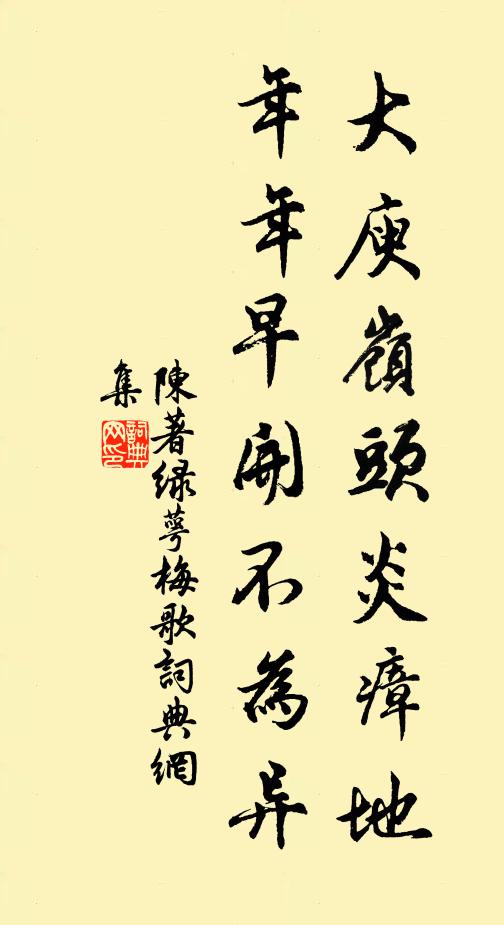 大庾嶺頭炎瘴地
年年早開不為异
陳著綠萼梅歌詞典網
集
詞典网印